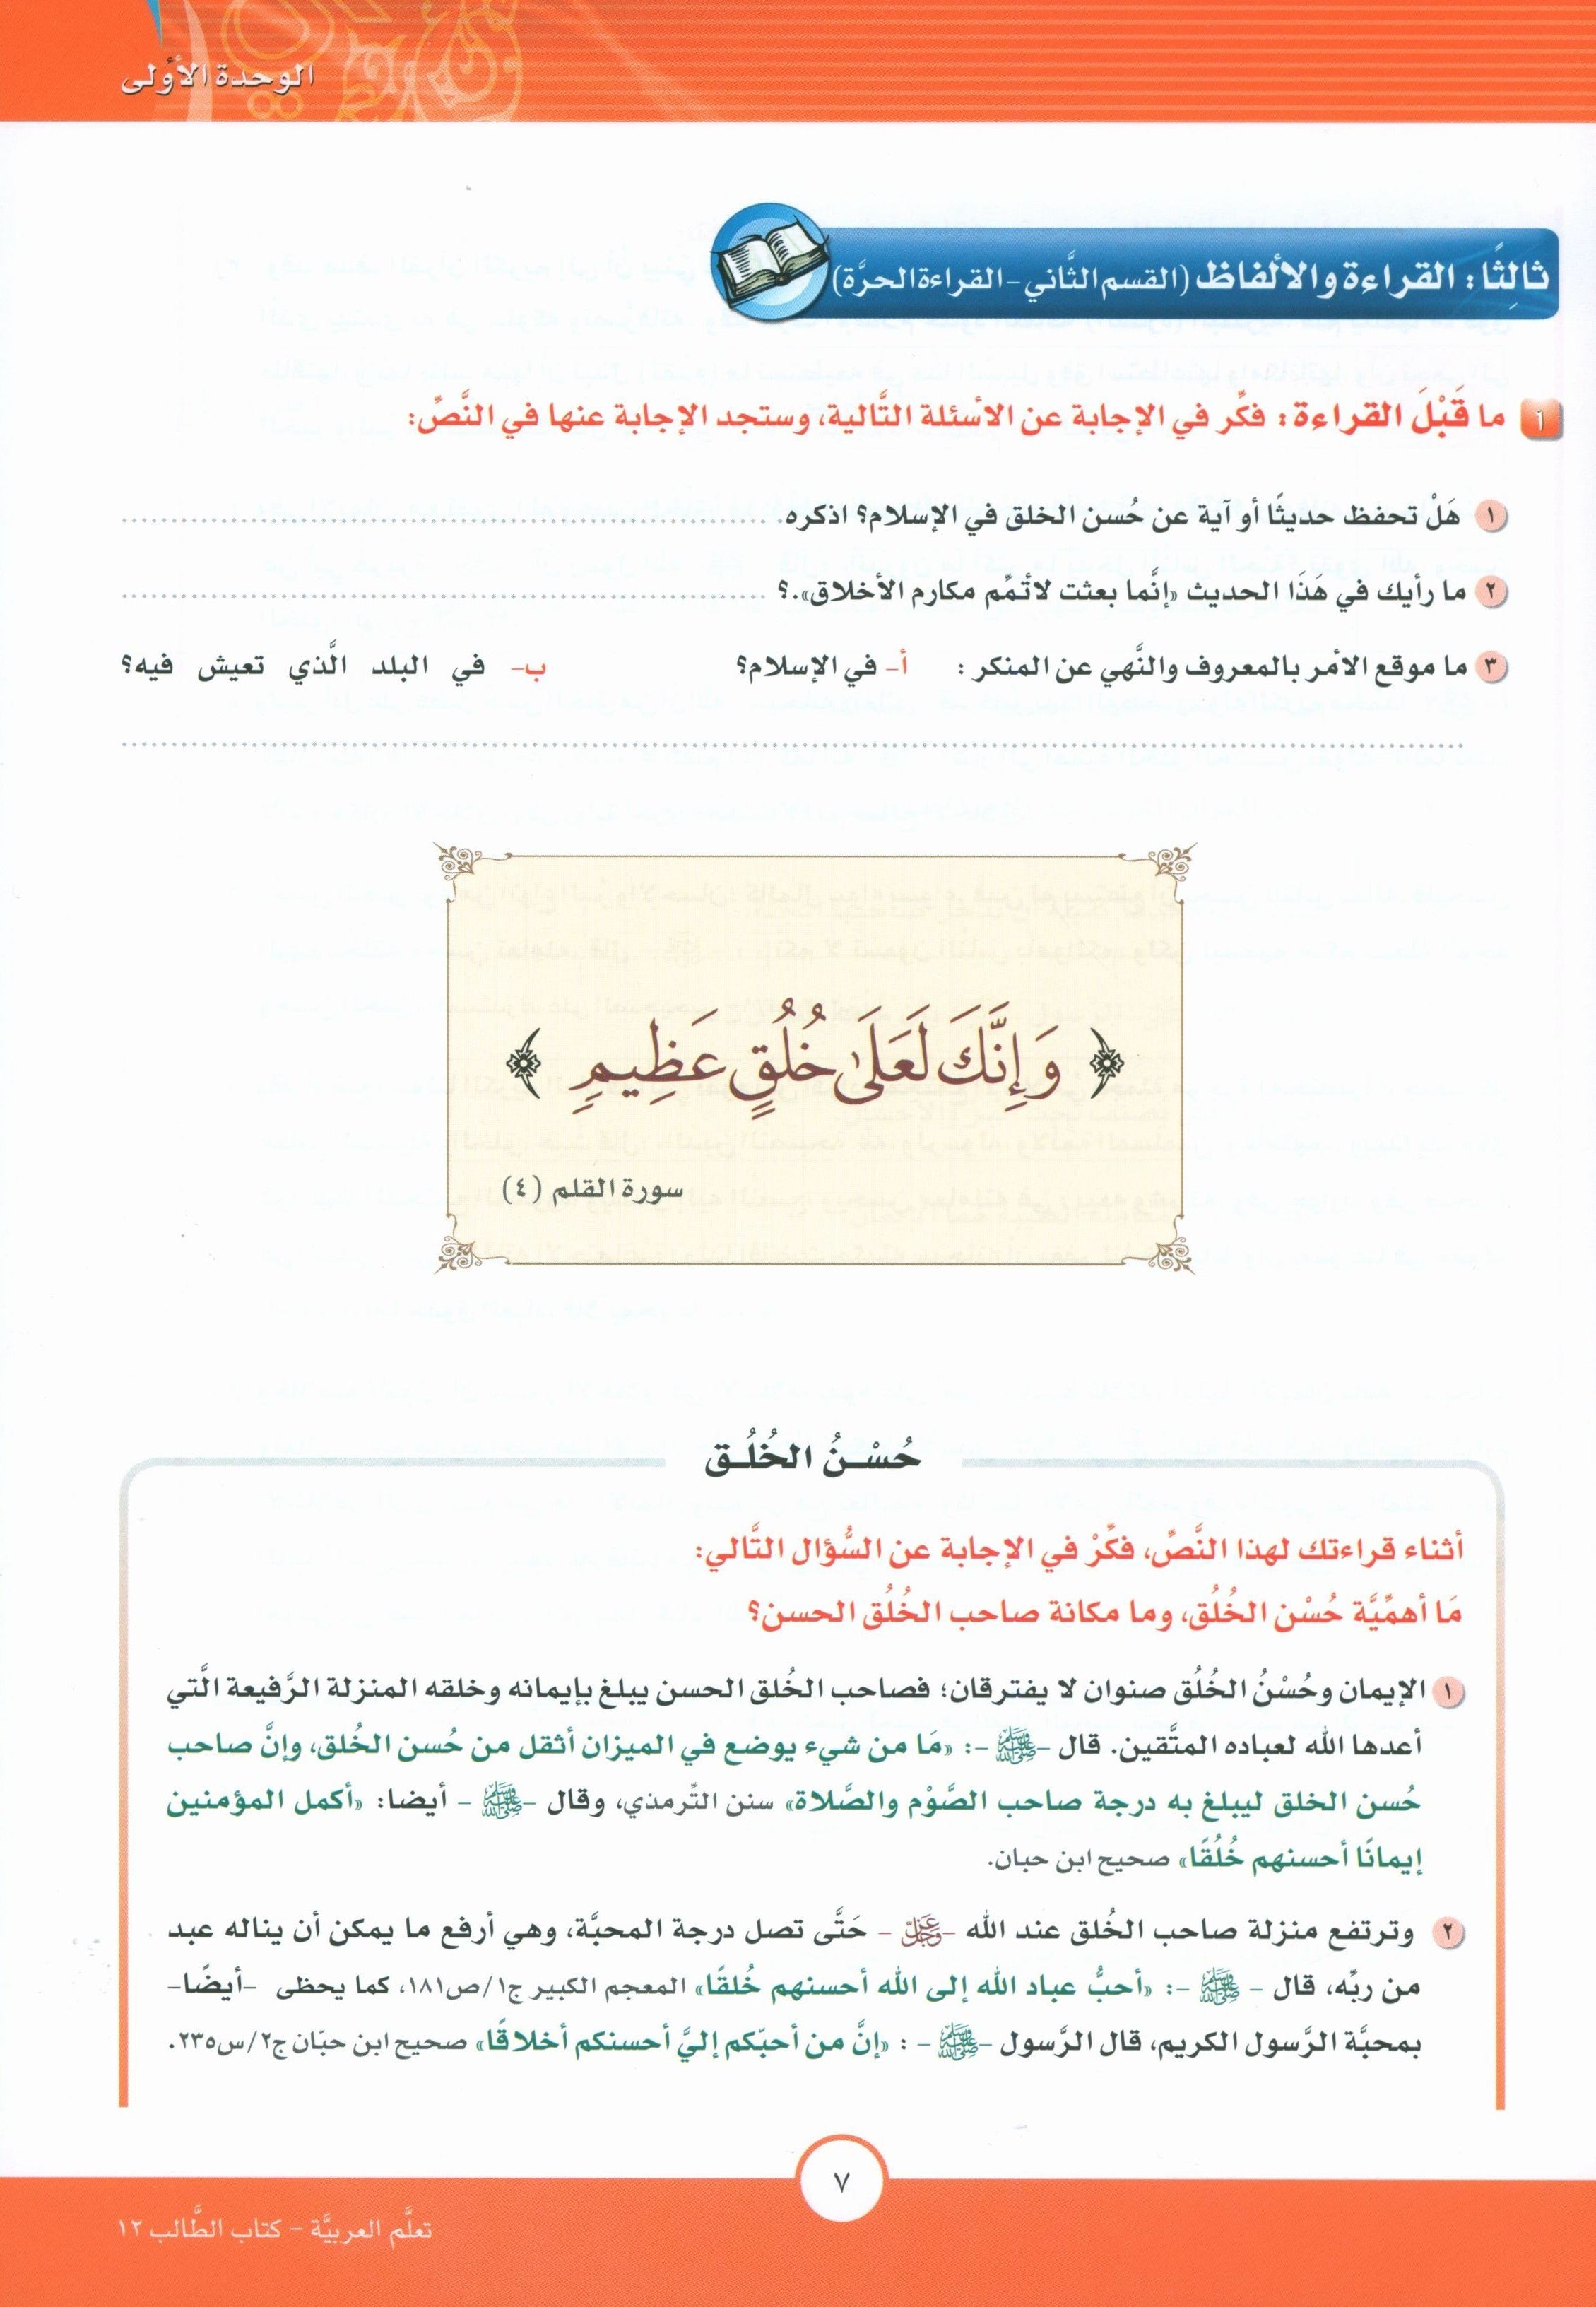 الوحدة الأولى
ثالِثًا: القراءة والألفاظ (القسم الثَّاني - القراءة الحرَّة)
١ ما قَبْلَ القراءة: فكِّر في الإجابة عن الأسئلة التَّالية، وستجد الإجابة عنها في النَّصِّ:
١ هَلْ تحفظ حديثًا أو آية عن حُسن الخلق في الإسلام؟ اذكره
٢ ما رأيك في هَذَا الحديث «إنَّما بعثت لأتمِّم مكارم الأخلاق».؟
٣ ما موقع الأمر بالمعروف والنَّهي عن المنكر: أ- في الإسلام؟ ب- في البلد الَّذي تعيش فيه؟
﴿ وَإِنَّكَ لَعَلَىٰ خُلُقٍ عَظِيمٍ ﴾
سورة القلم (٤)
حُسْنُ الخُلُق
أثناء قراءتك لهذا النَّصِّ، فكِّرْ في الإجابة عن السُّؤال التَّالي:
مَا أهمِّيَّة حُسْن الخُلُق، وما مكانة صاحب الخُلُق الحسن؟
١ الإيمان وحُسْنُ الخُلُق صنوان لا يفترقان؛ فصاحب الخُلق الحسن يبلغ بإيمانه وخلقه المنزلة الرَّفيعة الَّتي
أعدها الله لعباده المتَّقين. قال -ﷺ-: «مَا من شيء يوضع في الميزان أثقل من حُسن الخُلق، وإنَّ صاحب
حُسن الخلق ليبلغ به درجة صاحب الصَّوْم والصَّلاة» سنن التِّرمذي، وقال -ﷺ- أيضا: «أكمل المؤمنين
إيمانًا أحسنهم خُلُقًا» صحيح ابن حبان.
٢ وترتفع منزلة صاحب الخُلق عند الله -عَزَّ وَجَلَّ- حَتَّى تصل درجة المحبَّة، وهي أرفع ما يمكن أن يناله عبد
من ربِّه، قال - ﷺ -: «أحبُّ عباد الله إلى الله أحسنهم خُلقًا» المعجم الكبير ج١/ص١٨١، كما يحظى -أيضًا-
بمحبَّة الرَّسول الكريم، قال الرَّسول -ﷺ- : «إنَّ من أحبّكم إليَّ أحسنكم أخلاقًا» صحيح ابن حبّان ج٢/س٢٣٥.
٧
تعلَّم العربيَّة - كتاب الطَّالب ١٢